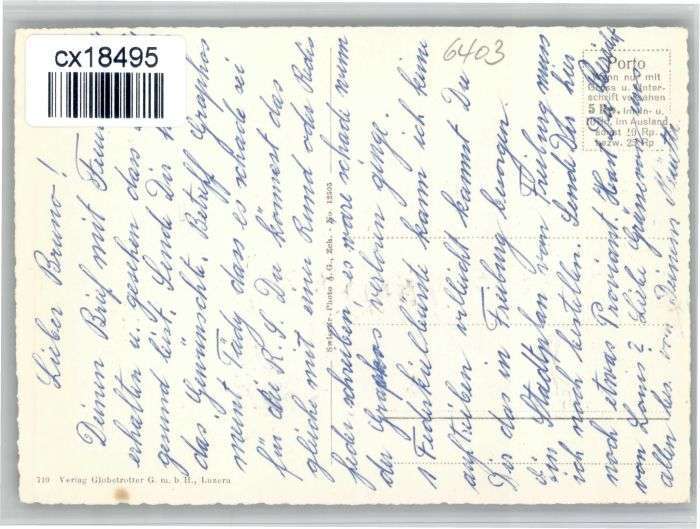 cx18495
6403
Porto
Wenn nur mit
Gruss u. Unter-
schrift versehen
5 Rp. im In- u.
10 Rp. im Ausland
sonst 10 Rp.
bezw. 25 Rp
Lieber Bruno!
Deinen Brief mit
erhalten u. gesehen das
gesund bist. Sende Dir
das Gewünschte. Betreff Graphos
meint Tädy das es schade sei
für die R.S. Du könnest das
gleiche mit eine Rund oder Redis
feder schreiben, es wäre schade wenn
der Graphos verloren ginge.
1 Federkielbürste kann ich keine
auftreiben vielleicht kannst Du
Dir das in Freiburg besorgen.
Ein Stadtplan von Freiburg muss
ich noch bestellen. Sende Dir hier
noch etwas Proviant. Hast
von Louis? Liebe Grüsse
allen bes. von Deiner Mutti
Schweiz. Photo A.G., Zch. - No 12505
710 Verlag Globetrotter G. m. b H., Luzern